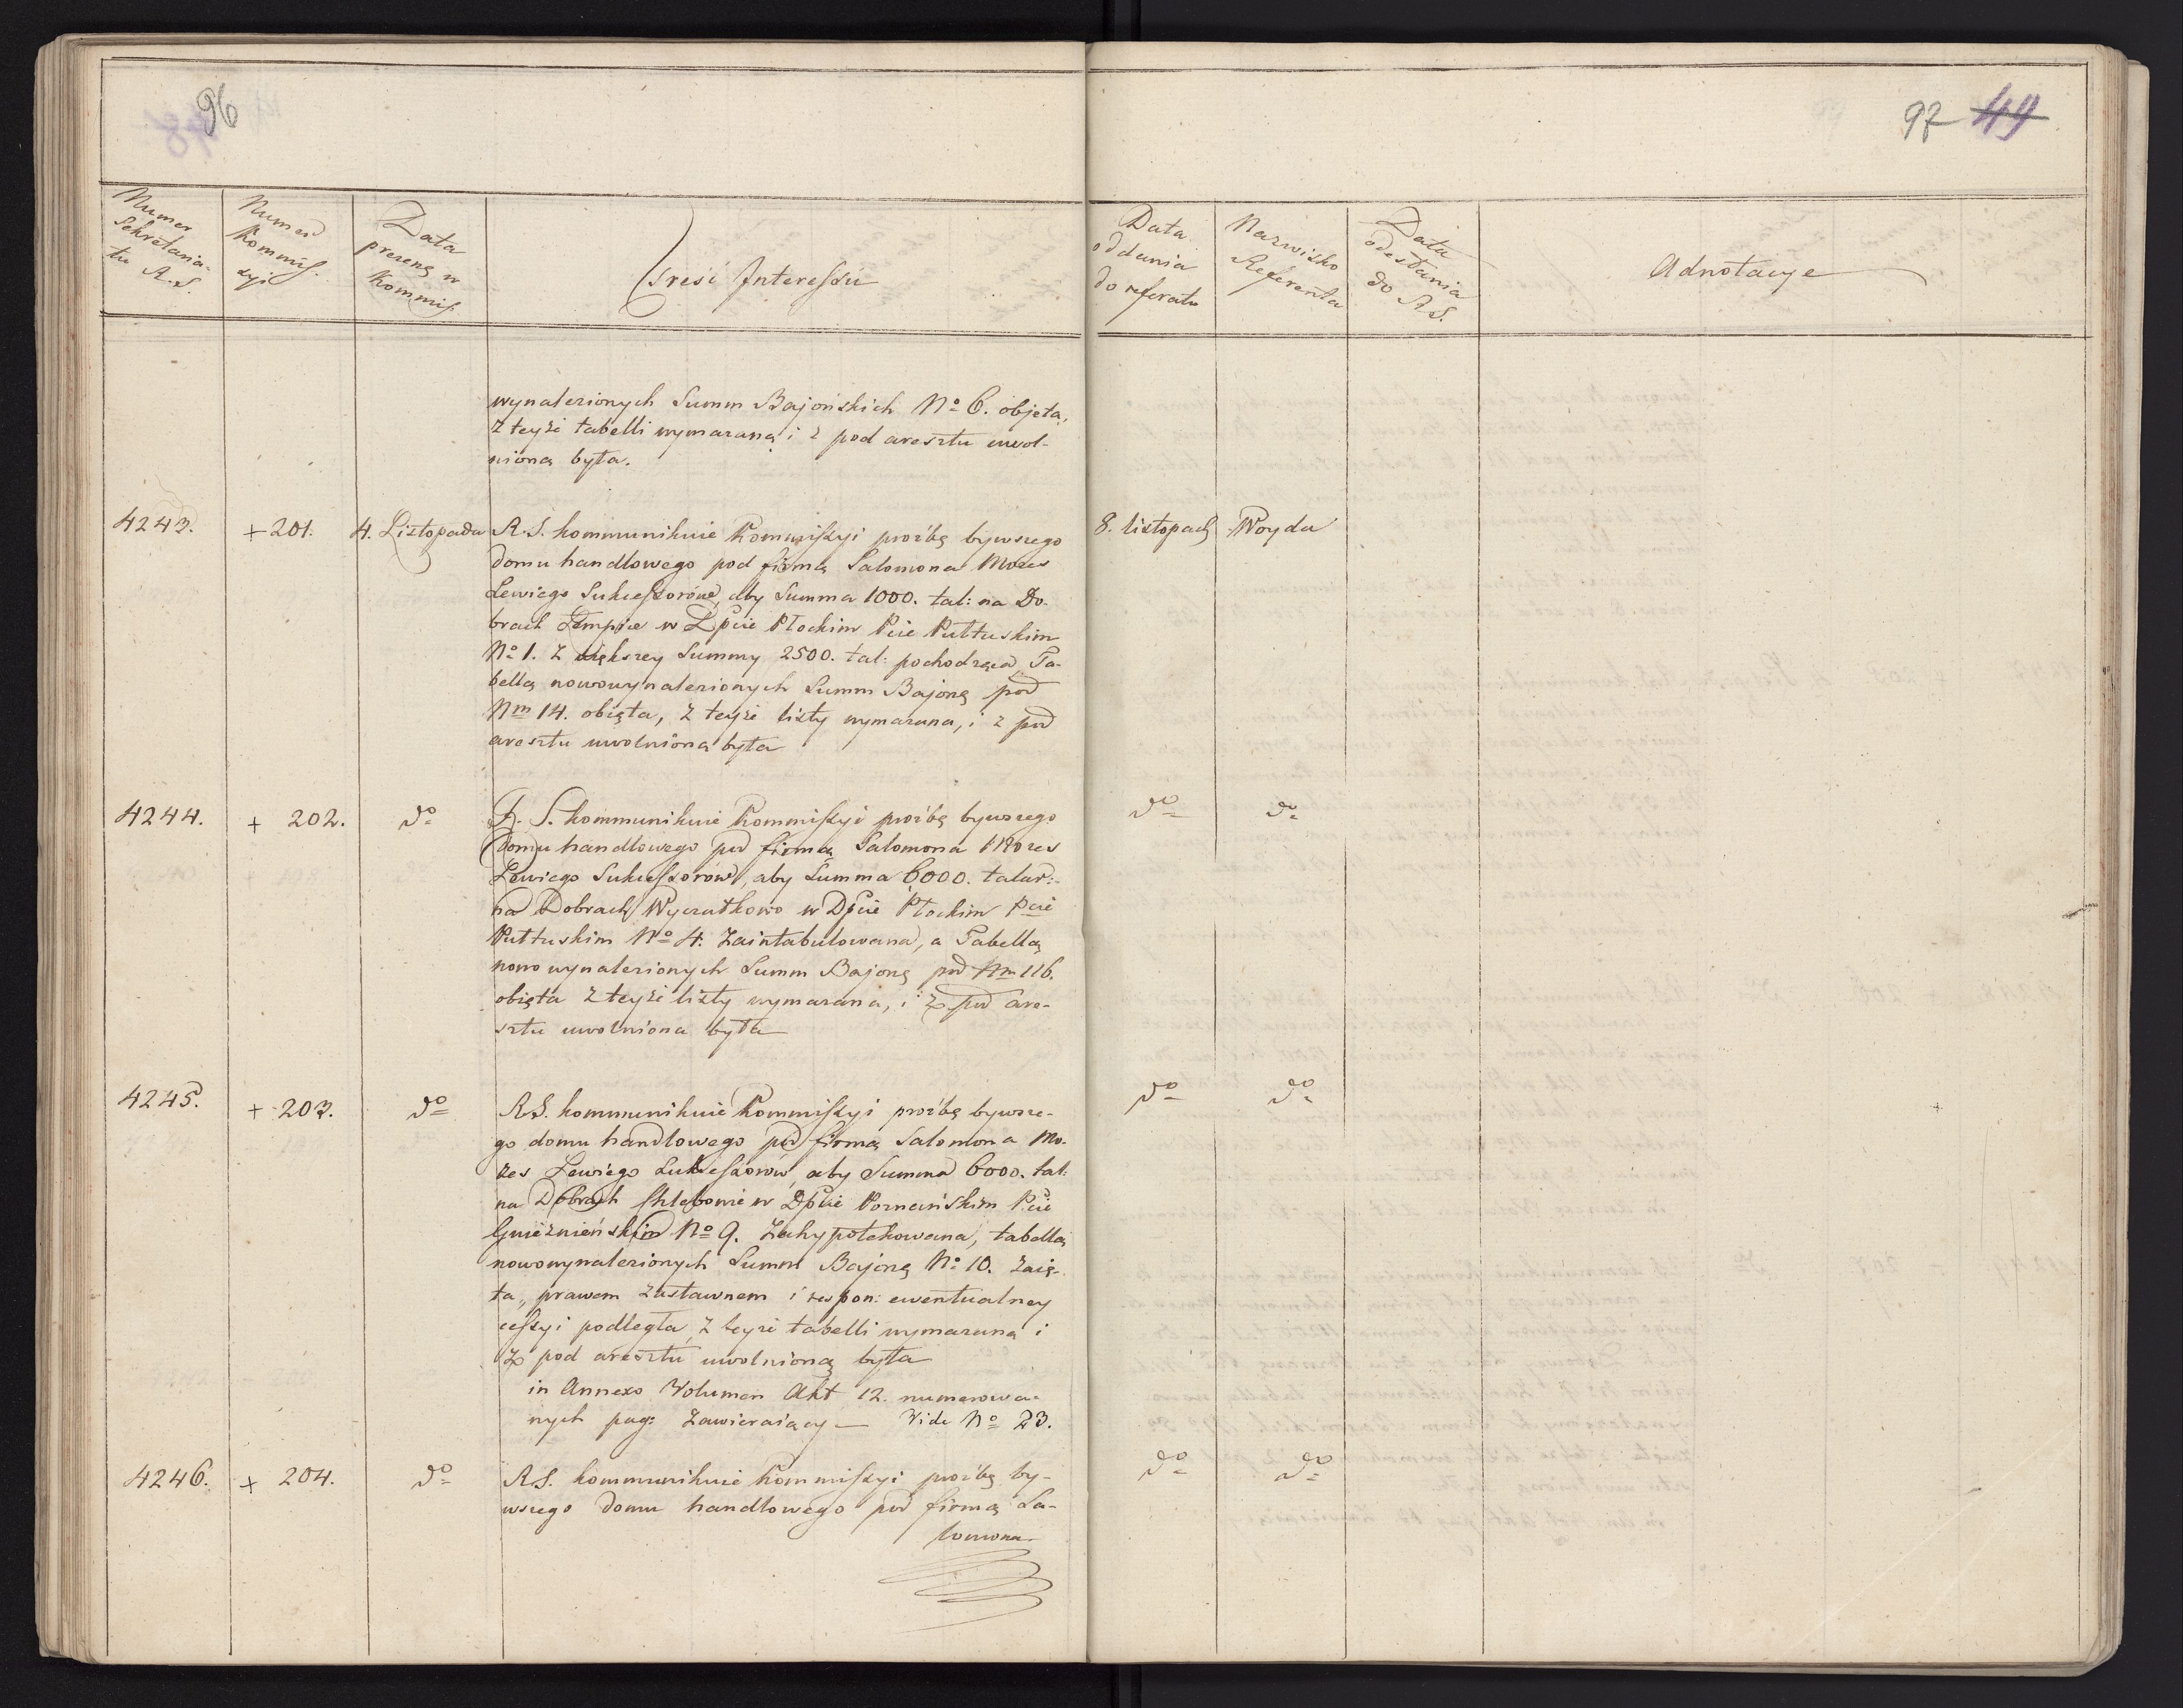 96
97 49
Numer Sekretaria-tu R. S.
Numer Kommis-syi
Data prezent w Kommis.
Treść Interessu
Data oddania do referatu
Nazwisko Referenta
Data odesłania do R S.
Adnotacye
wynalezionych Summ Bajońskich No 6. objęta,
z teyże tabelli wymazaną i z pod aresztu uwol-
nioną była.
4243. + 201. 4. Listopada R. S. kommunikuie Kommissyi prożbę bywszego 8. listopad Woyda
domu handlowego pod firmą Salomona Mozes
Lewiego Sukcessorów, aby Summa 1000. tal: na Do-
brach Lempice w Dpcie Płockim Pcie Pułtuskim
No 1. z większey Summy 2500. tal: pochodząca Ta-
bellą nowowynalezionych Summ Bajoną pod
Nm 14. obięta, z teyże listy wymazana, i z pod
aresztu uwolniona była
4244. + 202. do R. S. kommunikuie Kommissyi prożbę bywszego do do
domu handlowego pod firmą Salomona Mozes
Lewiego Sukcessorów, aby Summa 6000. talar:
na Dobrach Wyczałkowo w Dpcie Płockim Pcie
Pułtuskim No 4. zaintabulowana, a Tabellą
nowo wynalezionych Summ Bajoną pod Nm 116.
obięta z teyże listy wymazana, i z pod are-
sztu uwolniona była
4245. + 203. do R S. kommunikuie Kommissyi prożbę bywsze- do do
go domu handlowego pod firmą Salomona Mo-
zes Lewiego Sukcessorów, aby Summa 6000. tal:
na Dobrach Chlebowie w Dpcie Poznańskim Pcie
Gnieźnieńskim No 9. zahypotekowana, tabellą
nowowynalezionych Summ Bajoną No 10. zaię-
ta, prawem zastawnem i respon: ewentualney
cessyi podległa, z teyże tabelli wymazaną i
z pod aresztu uwolnioną była
in Annexo Volumen Akt 12. numerowa-
nych pag: zawieraiący — Vide No 23.
4246. + 204. do R S. kommunikuie Kommissyi prożbę by- do do
wszego domu handlowego pod firmą Sa-
lomona